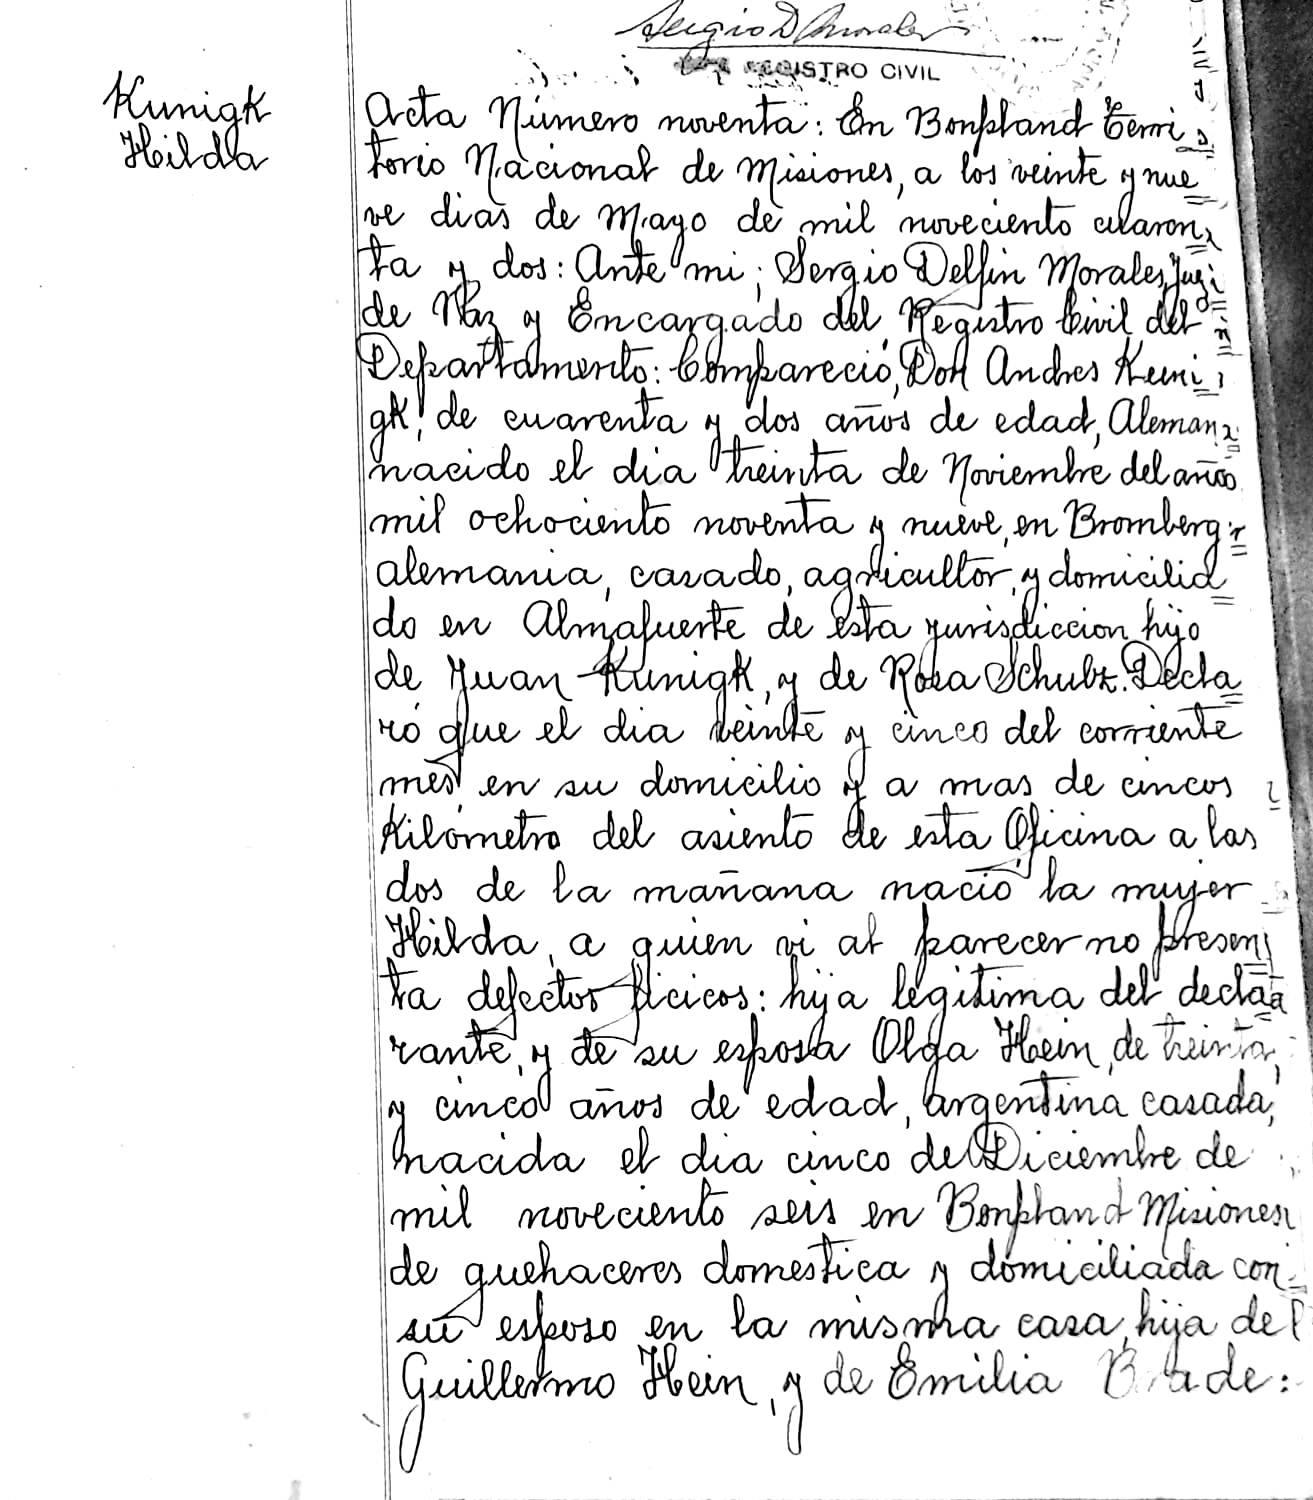 Sergio D Morales
REGISTRO CIVIL
Kunigk
Hilda
Acta Número noventa: En Bonpland Terri
torio Nacional de Misiones, a los veinte y nue
ve dias de Mayo de mil noveciento cuaren
ta y dos: Ante mi, Sergio Delfin Morales, Juez
de Paz y Encargado del Registro Civil del
Departamento: Compareció, Don Andres Kuni
gk, de cuarenta y dos años de edad, Aleman
nacido el dia treinta de Noviembre del año
mil ochociento noventa y nueve, en Bromberg
alemania, casado, agricultor, y domicilia
do en Almafuerte de esta yurisdiccion hijo
de Juan Kunigk, y de Rosa Schulz. Decla
ró que el dia veinte y cinco del corriente
mes, en su domicilio y a mas de cincos
Kilómetro del asiento de esta Oficina a las
dos de la mañana nació la mujer
Hilda, a quien vi al parecer no presen
ta defectos ficicos: hija légitima del decla
rante, y de su esposa Olga Hein, de treinta
y cinco años de edad, argentina casada,
nacida el dia cinco de Diciembre de
mil noveciento seis en Bonpland Misiones
de quehaceres domestica y domiciliada con
su esposo en la misma casa, hija de
Guillermo Hein, y de Emilia